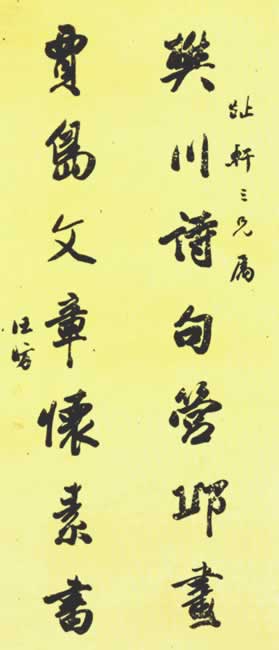 趾軒三兄属
樊川詩句營邱畫
賈島文章懷素書
汪昉